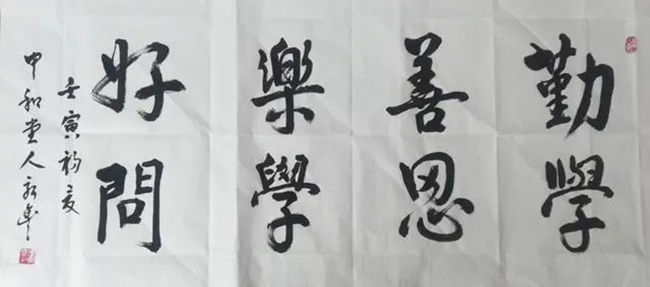 勤學
善思
樂學
好問
壬寅初夏
中和堂人